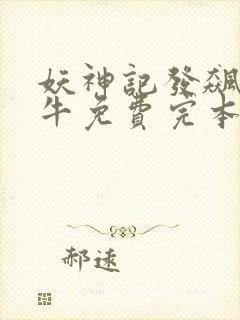 妖神記發飆
牛免費完本
郝遠